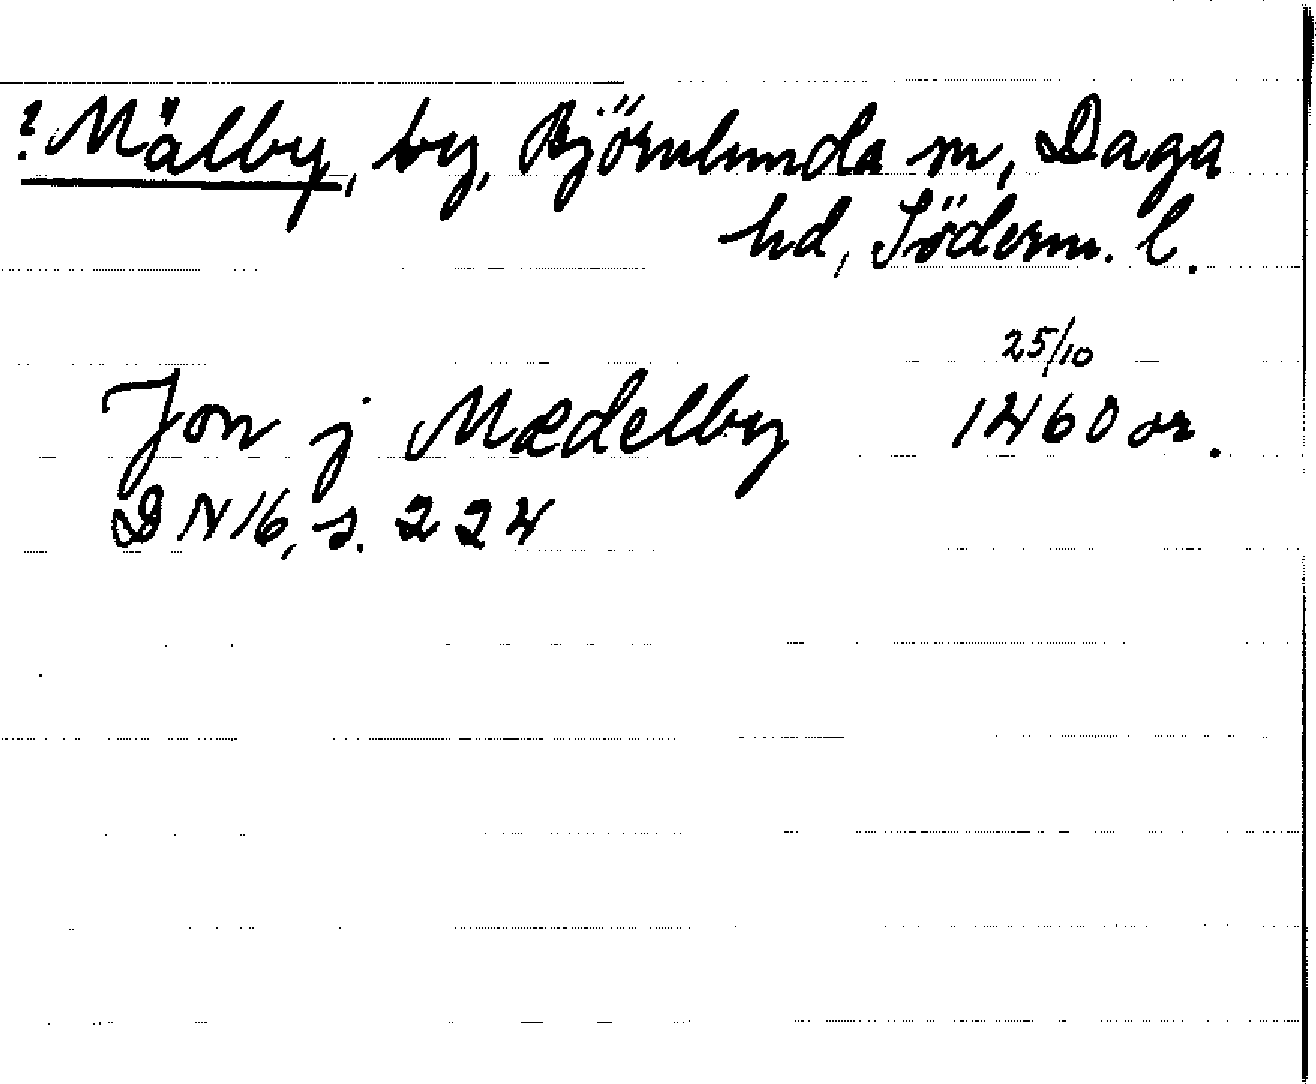 ? Mälby, by, Björnlunda sn, Daga
hd, Söderm. l.
25/10
Jon j Mædelby 1460 or.
DN 16, s. 224